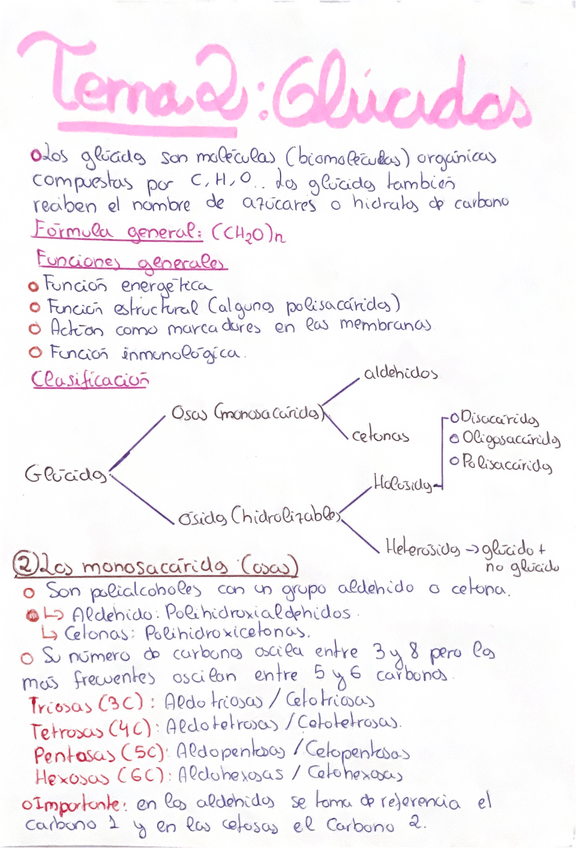 Tema 2: Glúcidos
Los glúcidos son moléculas (biomoléculas) orgánicas
compuestas por C, H, O.. Los glúcidos también
reciben el nombre de azúcares o hidratos de carbono
Fórmula general: (CH₂O)n
Funciones generales
Función energética
Función estructural (algunos polisacáridos)
Actúan como marcadores en las membranas.
Función inmunológica.
Clasificación
aldehidos
Osas (monosacáridos)
cetonas
Disacáridos
Oligosacáridos
Polisacáridos
Glúcidos
Holósidos
Ósidos (hidrolizables)
Heterósidos → glúcido +
no glúcido
② Los monosacáridos (osas)
Son polialcoholes con un grupo aldehido o cetona.
↳ Aldehido: Polihidroxialdehidos.
↳ Cetonas: Polihidroxicetonas.
Su número de carbono oscila entre 3 y 8 pero los
más frecuentes oscilan entre 5 y 6 carbonos.
Triosas (3C): Aldotriosas / Cetotriosas
Tetrosas (4C): Aldotetrosas / Cetotetrosas.
Pentosas (5C): Aldopentosas / Cetopentosas
Hexosas (6C): Aldohexosas / Cetohexosas
Importante: en los aldehidos se toma de referencia el
carbono 1 y en las cetosas el Carbono 2.